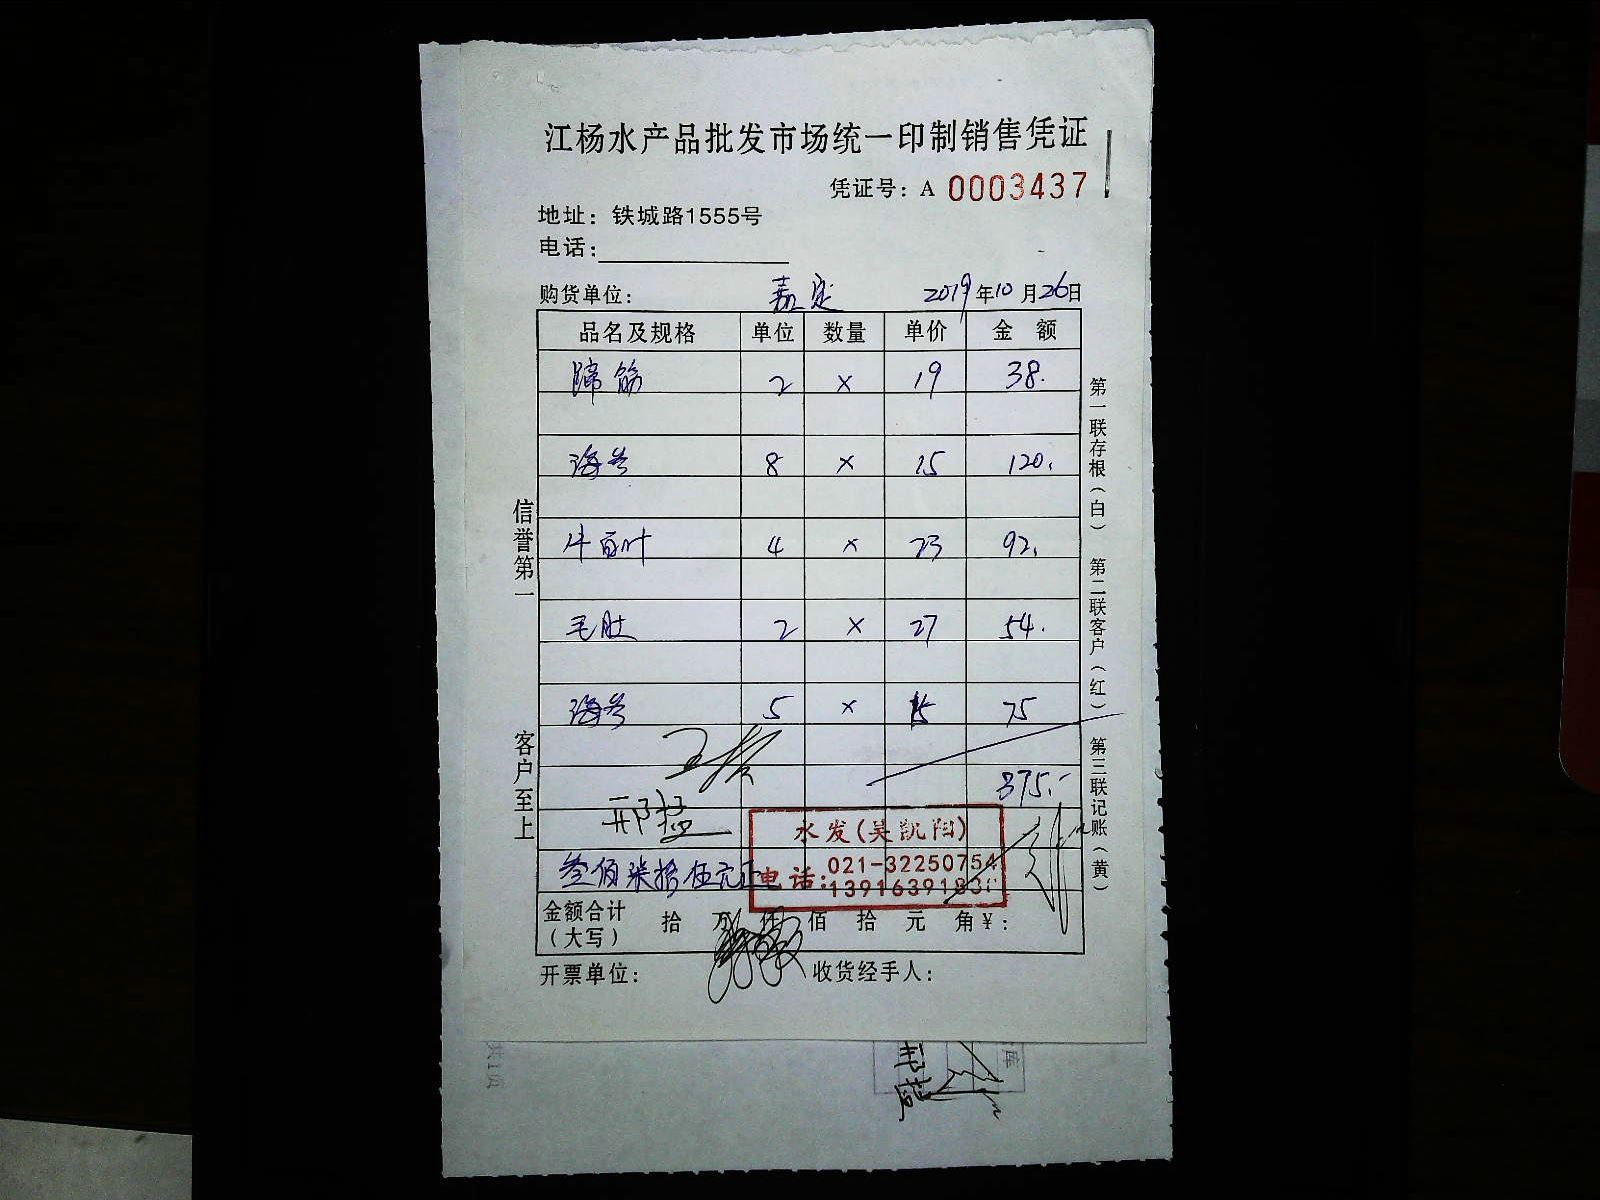 江杨水产品批发市场统一印制销售凭证
凭证号：A 0003437
地址：铁城路1555号
电话：
购货单位： 嘉定 2019年10月26日
品名及规格 单位 数量 单价 金额
蹄筋 2 × 19 38.
海参 8 × 15 120.
牛百叶 4 × 23 92.
毛肚 2 × 27 54.
海参 5 × 15 75
375.-
邢
叁佰柒拾伍元正
水发(吴凯阳)
电话：021-32250754
139163918
金额合计（大写） 拾 万 仟 佰 拾 元 角￥：
开票单位： 收货经手人：
信誉第一
客户至上
第一联存根（白） 第二联客户（红） 第三联记账（黄）
库
共1页